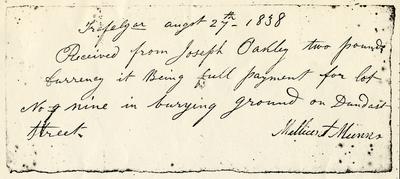 Trafelgar augst 27th - 1838
Received from Joseph Oakley two pounds
Currency it Being full payment for lot
No 9 nine in burying ground on Dundait
Street. Millicent Munns